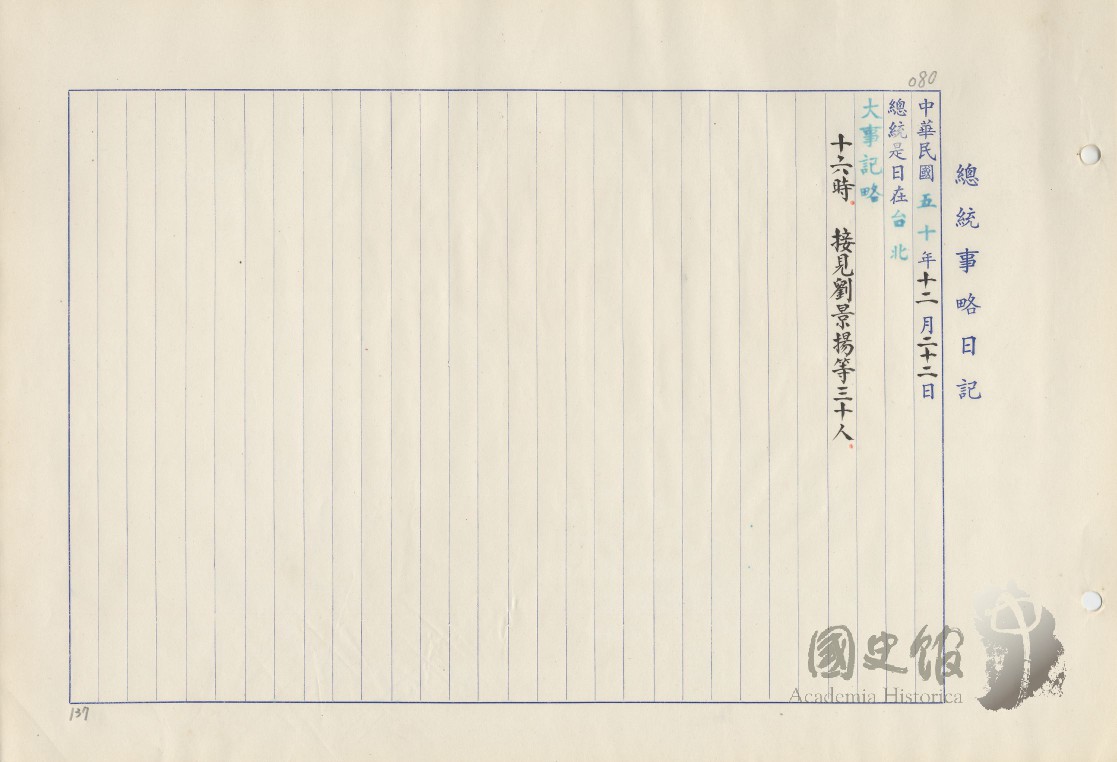 080
總統事略日記
中華民國五十年十二月二十二日
總統是日在台北
大事記略
十六時。 接見劉景揚等三十人。
137
國史館
Academia Historica